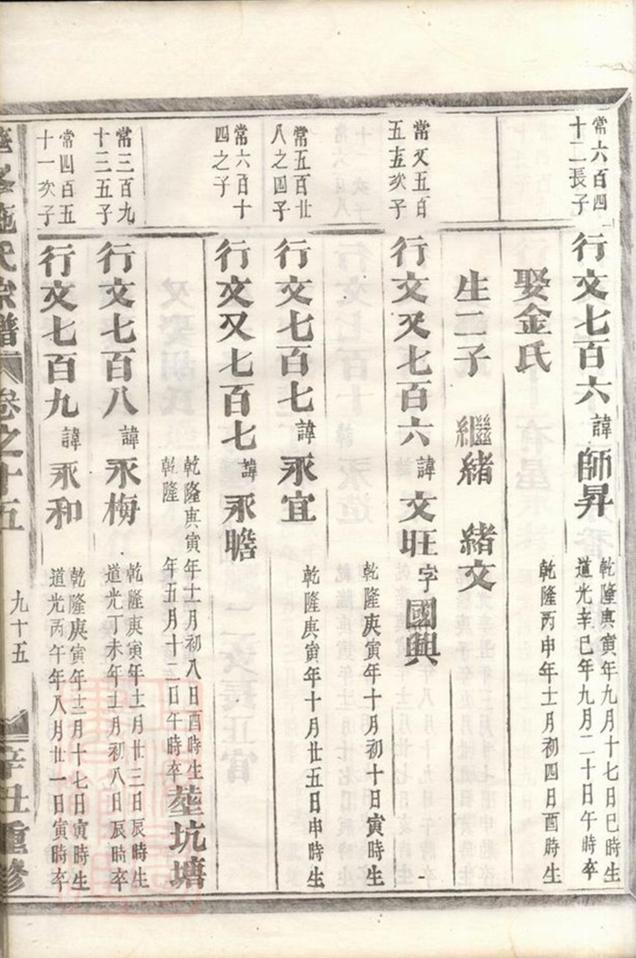 常六百四
十二長子
行文七百六 諱師昇
乾隆庚寅年九月十七日巳時生
道光辛巳年九月二十日午時卒
娶金氏
乾隆丙申年十二月初四日酉時生
生二子 繼緒 緒文
常又五百
五十五次子
行文又七百六 諱文旺 字國興
乾隆庚寅年十月初十日寅時生
常五百廿
八之四子
行文七百七 諱永宜
乾隆庚寅年十月廿五日申時生
常六百十
四之子
行文又七百七 諱永瞻
乾隆庚寅年十一月初八日酉時生
乾隆 年五月十二日午時卒
塟坑塘
常三百九
十三五子
行文七百八 諱永梅
乾隆庚寅年十一月廿三日辰時生
道光丁未年十二月初八日辰時卒
常四百五
十一次子
行文七百九 諱永和
乾隆庚寅年十二月十七日寅時生
道光丙午年八月廿一日寅時卒
施氏宗譜 卷之十五 九十五 辛丑重修